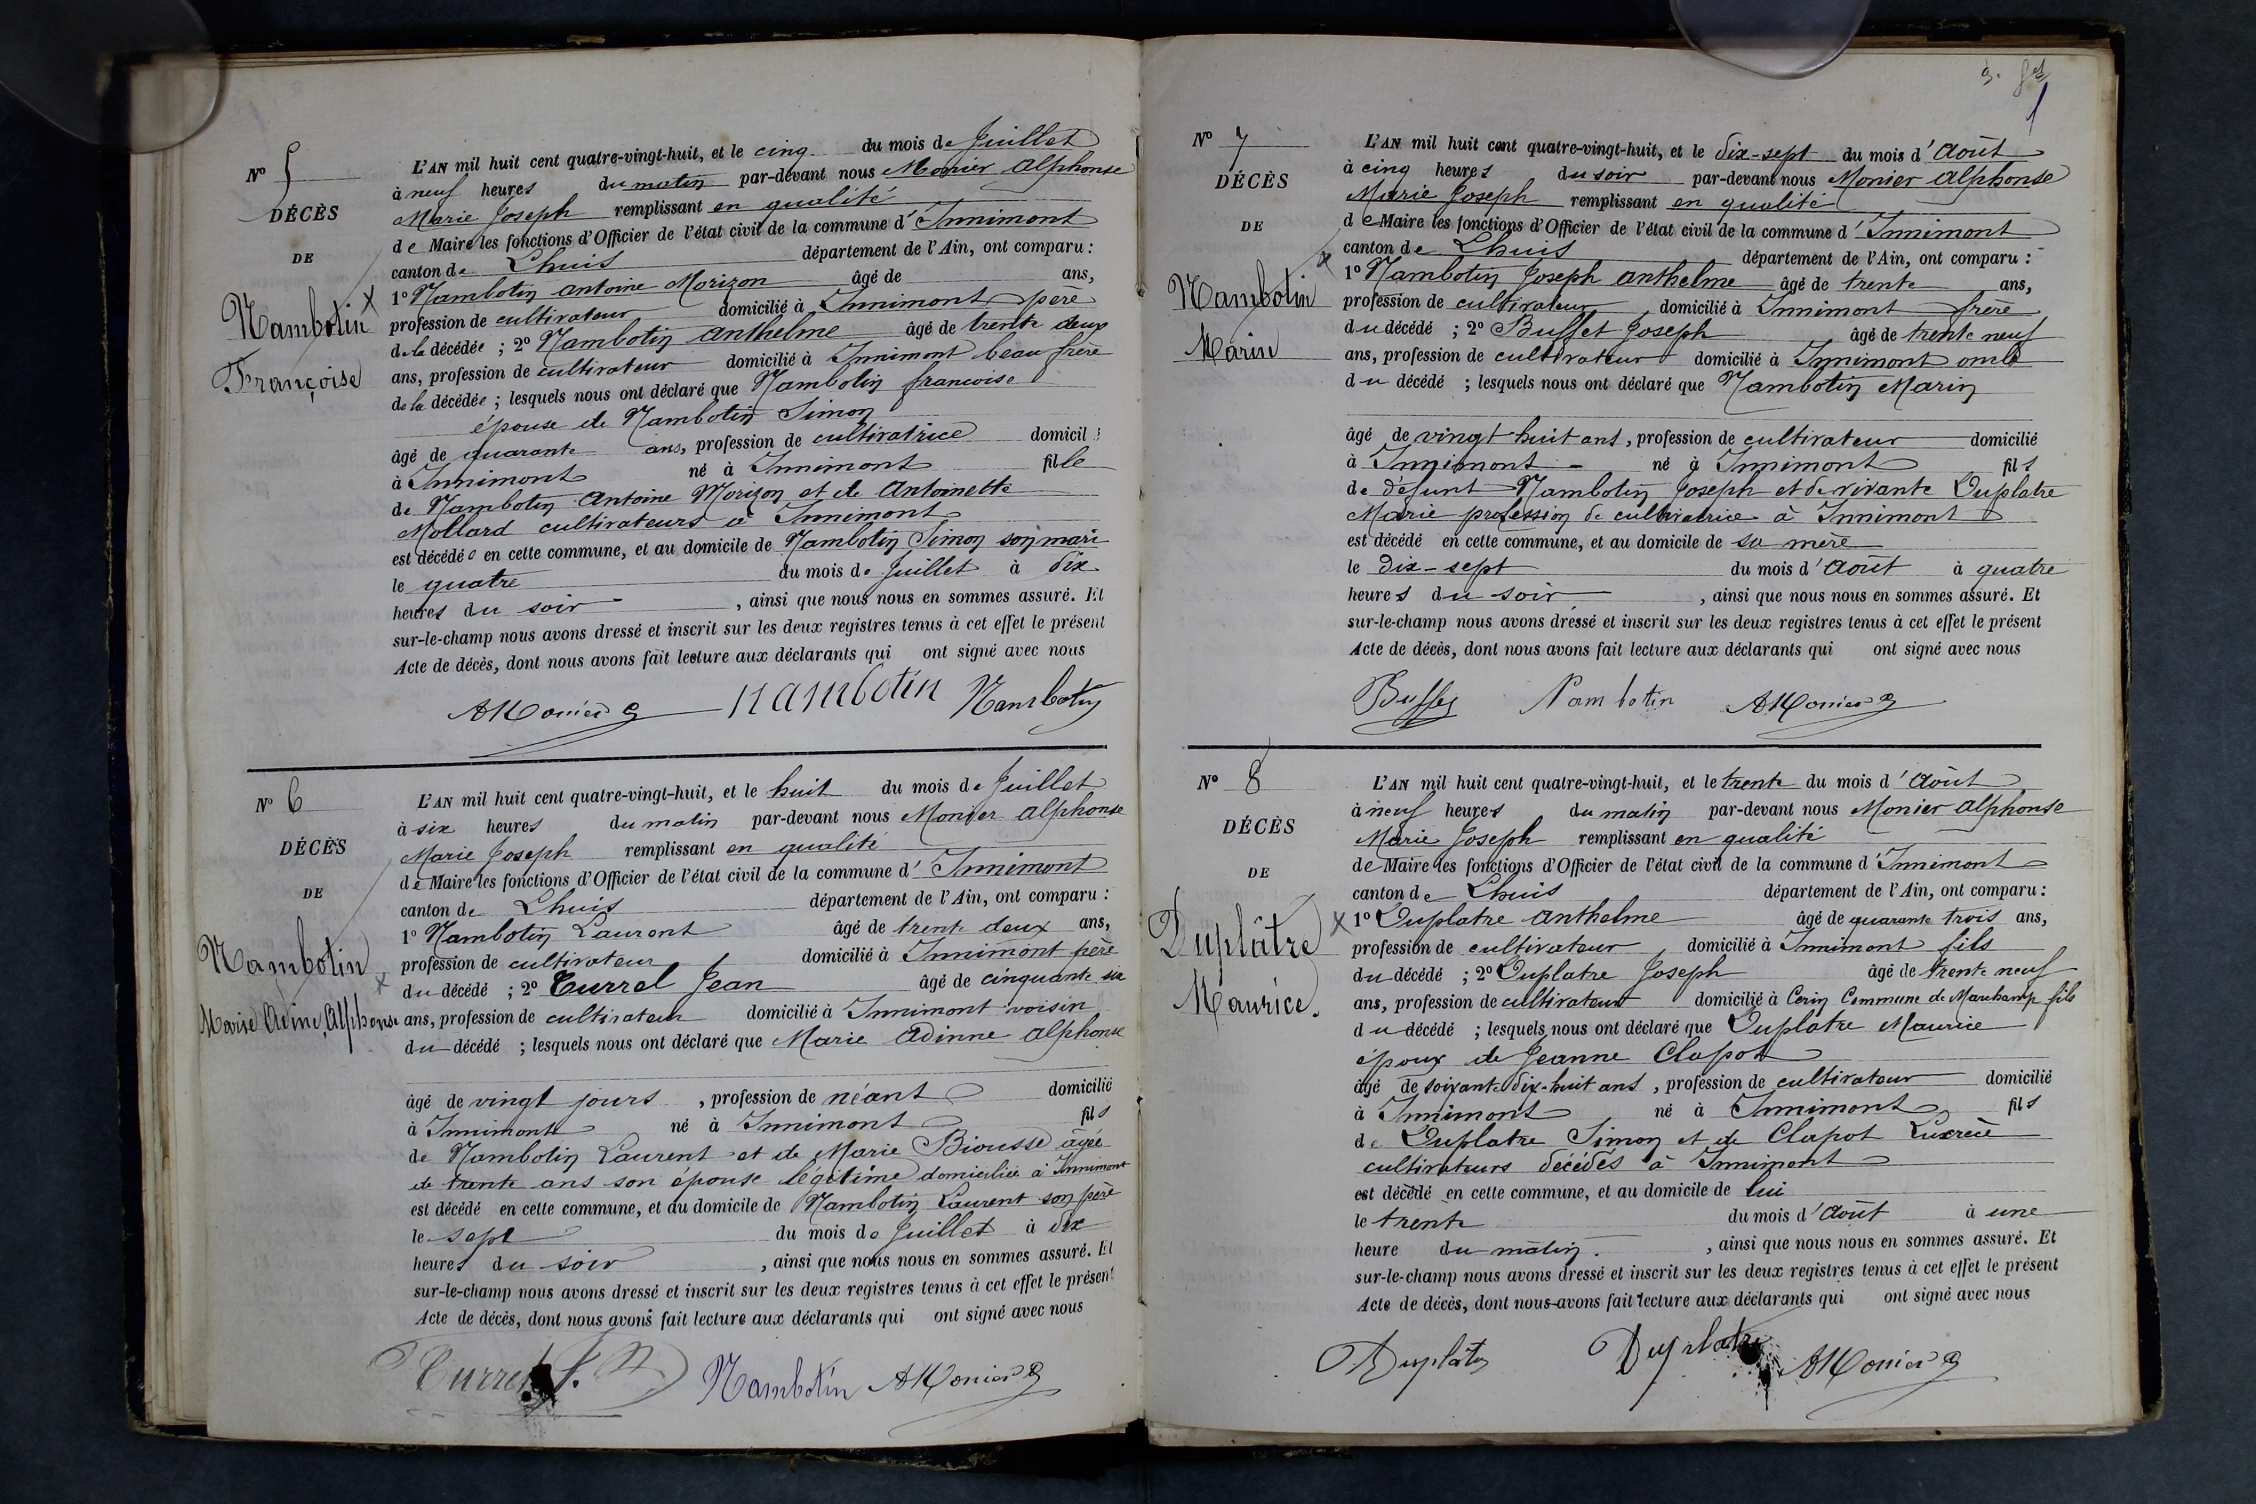 Nº 5
DÉCÈS
DE
Nambotin
Françoise
L'AN mil huit cent quatre-vingt-huit, et le cinq du mois de Juillet
à neuf heures du matin par-devant nous Monier Alphonse
Marie Joseph remplissant en qualité
de Maire les fonctions d'Officier de l'état civil de la commune d'Innimont
canton de Lhuis département de l'Ain, ont comparu :
1º Nambotin Antoine Morizon âgé de ans,
profession de cultivateur domicilié à Innimont père
de la décédée ; 2º Nambotin Anthelme âgé de trente deux
ans, profession de cultivateur domicilié à Innimont beau frère
de la décédée ; lesquels nous ont déclaré que Nambotin francoise
épouse de Nambotin Simon
âgé de quarante ans, profession de cultivatrice domicil
à Innimont né à Innimont fille
de Nambotin Antoine Morizon et de Antoinette
Mollard cultivateurs à Innimont
est décédée en cette commune, et au domicile de Nambotin Simon son mari
le quatre du mois de Juillet à dix
heures du soir , ainsi que nous nous en sommes assuré. Et
sur-le-champ nous avons dressé et inscrit sur les deux registres tenus à cet effet le présent
Acte de décès, dont nous avons fait lecture aux déclarants qui ont signé avec nous
AMonier Nambotin Nambotin
Nº 6
DÉCÈS
DE
Nambotin
Marie Adine Alphonse
L'AN mil huit cent quatre-vingt-huit, et le huit du mois de Juillet
à six heures du matin par-devant nous Monier Alphonse
Marie Joseph remplissant en qualité
de Maire les fonctions d'Officier de l'état civil de la commune d'Innimont
canton de Lhuis département de l'Ain, ont comparu :
1º Nambotin Laurent âgé de trente deux ans,
profession de cultivateur domicilié à Innimont père
du décédé ; 2º Turrel Jean âgé de cinquante six
ans, profession de cultivateur domicilié à Innimont voisin
du décédé ; lesquels nous ont déclaré que Marie Adinne Alphonse
âgé de vingt jours , profession de néant domicilié
à Innimont né à Innimont fils
de Nambotin Laurent et de Marie Biousse âgée
de trente ans son épouse légitime domiciliée à Innimont
est décédé en cette commune, et au domicile de Nambotin Laurent son père
le sept du mois de Juillet à dix
heures du soir , ainsi que nous nous en sommes assuré. Et
sur-le-champ nous avons dressé et inscrit sur les deux registres tenus à cet effet le présent
Acte de décès, dont nous avons fait lecture aux déclarants qui ont signé avec nous
Turrel J. Nambotin AMonier
Nº 7
DÉCÈS
DE
Nambotin
Marin
L'AN mil huit cent quatre-vingt-huit, et le dix-sept du mois d'Août
à cinq heures du soir par-devant nous Monier Alphonse
Marie Joseph remplissant en qualité
de Maire les fonctions d'Officier de l'état civil de la commune d'Innimont
canton de Lhuis département de l'Ain, ont comparu :
1º Nambotin Joseph Anthelme âgé de trente ans,
profession de cultivateur domicilié à Innimont frère
du décédé ; 2º Buffet Joseph âgé de trente neuf
ans, profession de cultivateur domicilié à Innimont oncle
du décédé ; lesquels nous ont déclaré que Nambotin Marin
âgé de vingt huit ans, profession de cultivateur domicilié
à Innimont né à Innimont fils
de défunt Nambotin Joseph et de vivante Duplatre
Marie profession de cultivatrice à Innimont
est décédé en cette commune, et au domicile de sa mère
le dix-sept du mois d'Août à quatre
heures du soir , ainsi que nous nous en sommes assuré. Et
sur-le-champ nous avons dressé et inscrit sur les deux registres tenus à cet effet le présent
Acte de décès, dont nous avons fait lecture aux déclarants qui ont signé avec nous
Nambotin AMonier
Nº 8
DÉCÈS
DE
Duplâtre
Maurice.
L'AN mil huit cent quatre-vingt-huit, et le trente du mois d'Août
à neuf heures du matin par-devant nous Monier Alphonse
Marie Joseph remplissant en qualité
de Maire les fonctions d'Officier de l'état civil de la commune d'Innimont
canton de Lhuis département de l'Ain, ont comparu :
1º Duplatre Anthelme âgé de quarante trois ans,
profession de cultivateur domicilié à Innimont fils
du décédé ; 2º Duplatre Joseph âgé de trente neuf
ans, profession de cultivateur domicilié à Cerin Commune de Marchamp fils
du décédé ; lesquels nous ont déclaré que Duplatre Maurice
époux de Jeanne Clapot
âgé de soixante dix-huit ans , profession de cultivateur domicilié
à Innimont né à Innimont fils
de Duplatre Simon et de Clapot Luxrece
cultivateurs décédés à Innimont
est décédé en cette commune, et au domicile de lui
le trente du mois d'Août à une
heure du matin. , ainsi que nous nous en sommes assuré. Et
sur-le-champ nous avons dressé et inscrit sur les deux registres tenus à cet effet le présent
Acte de décès, dont nous avons fait lecture aux déclarants qui ont signé avec nous
Duplatre AMonier